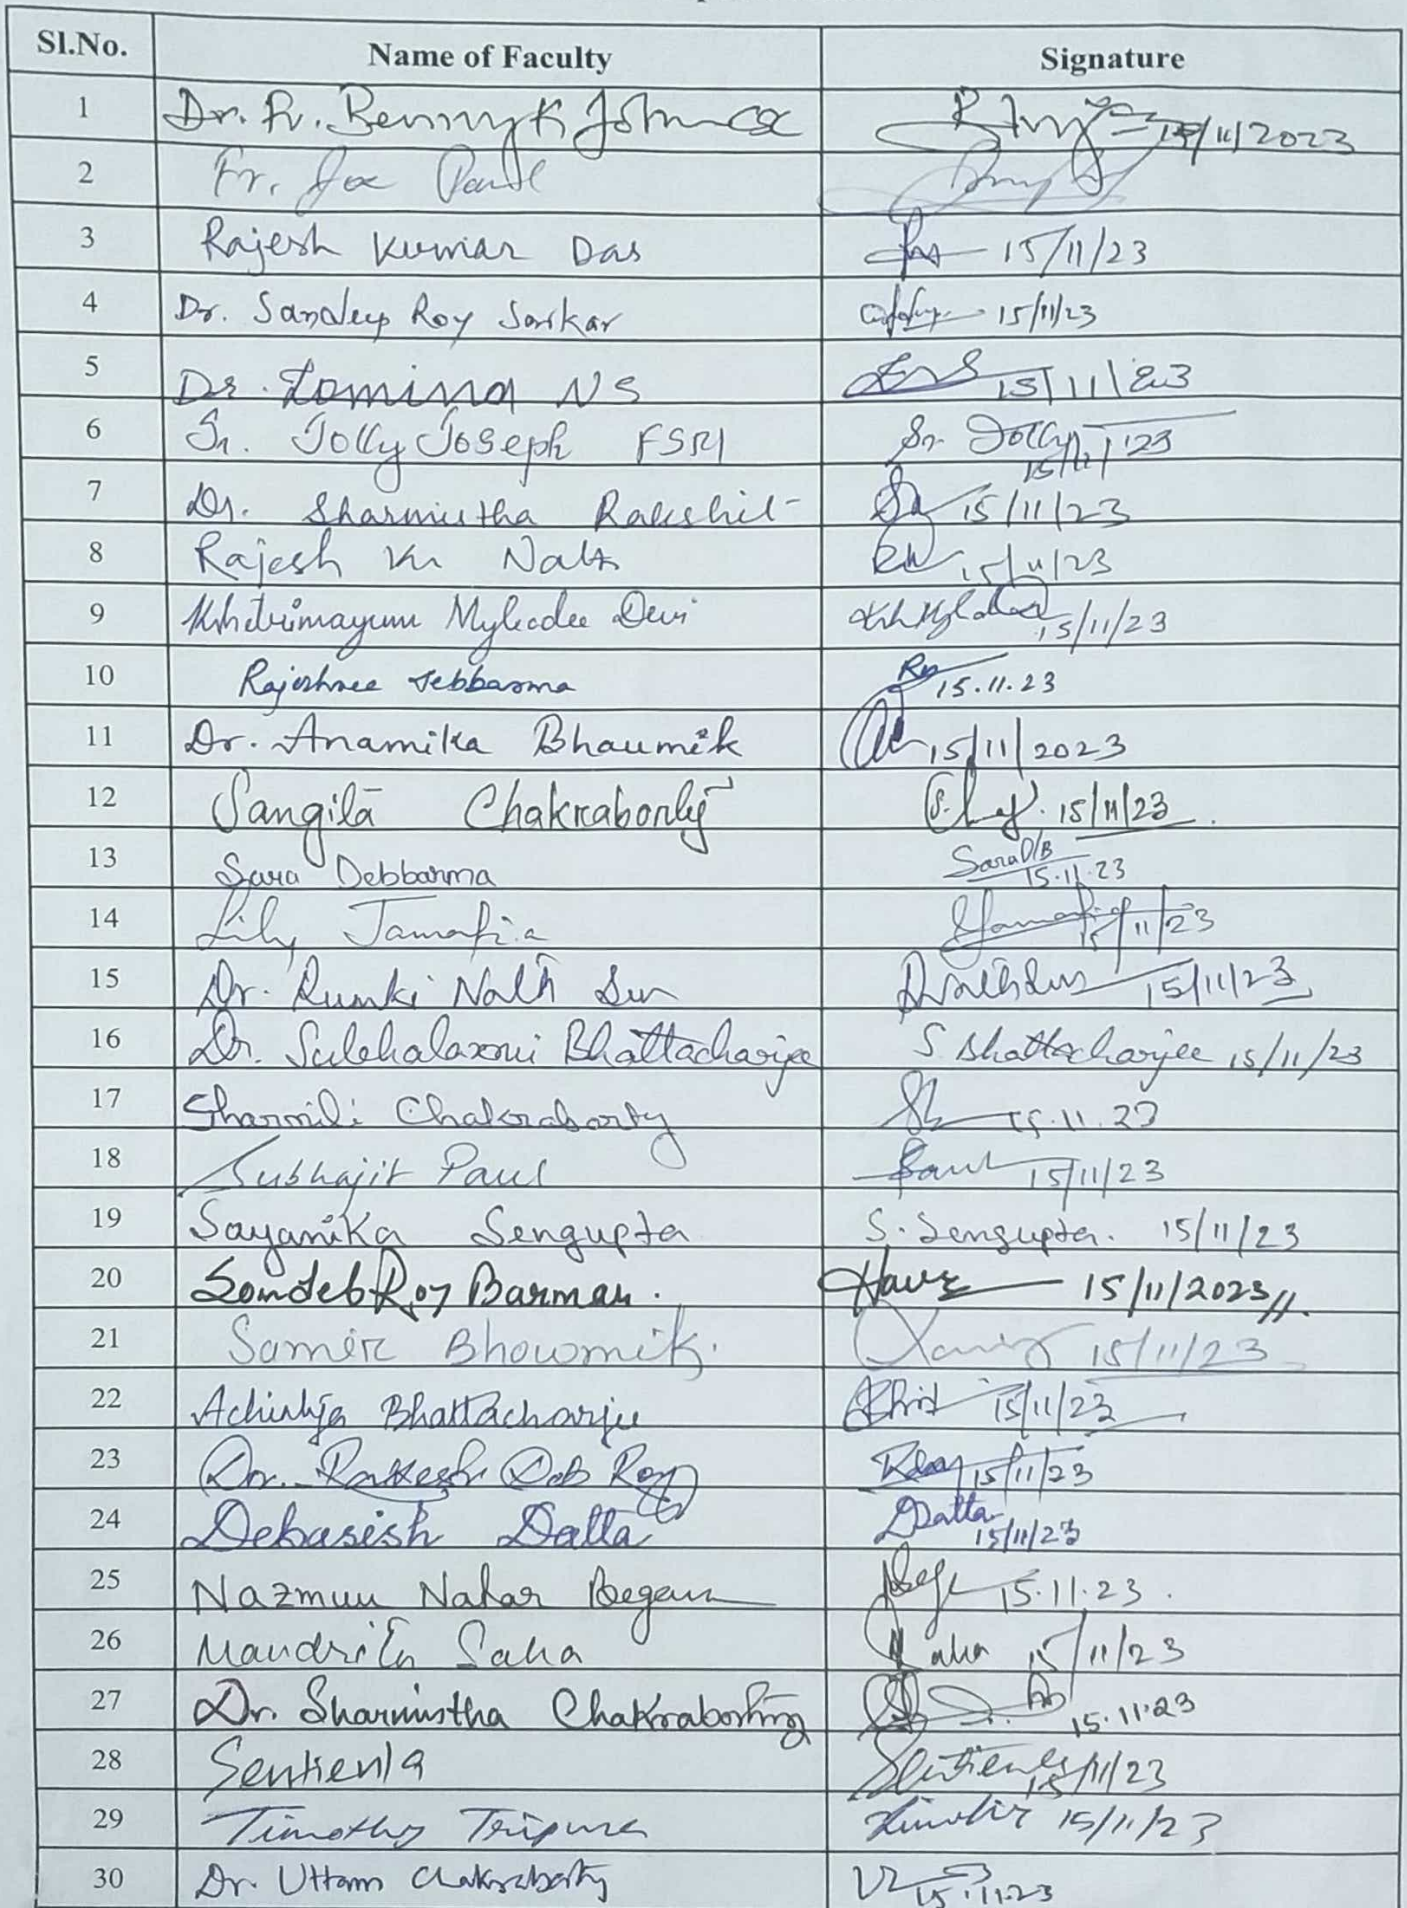 Sl.No. Name of Faculty Signature
1 Dr. Fr. Benny K John 15/11/2023
2 Fr. Joe Paul
3 Rajesh Kumar Das 15/11/23
4 Dr. Sandeep Roy Sarkar 15/11/23
5 Dr. Lomina NS 15/11/23
6 Sr. Jolly Joseph FSM Sr. Jolly 15/11/23
7 Dr. Sharmistha Rakshit 15/11/23
8 Rajesh Kr Nath 15/11/23
9 Khetrimayum Devi 15/11/23
10 Rajeshree Debbarma 15.11.23
11 Dr. Anamika Bhaumik 15/11/2023
12 Sangita Chakraborty 15/11/23
13 Sara Debbarma Sara D/B 15.11.23
14 Lily Jamatia 15/11/23
15 Dr. Rumki Nath 15/11/23
16 Dr. Subhalaxmi Bhattacharjee S. Bhattacharjee 15/11/23
17 Sharmili Chakraborty 15.11.23
18 Subhajit Paul Paul 15/11/23
19 Sayanika Sengupta S. Sengupta. 15/11/23
20 Somdeb Roy Barman. 15/11/2023
21 Samir Bhowmik. 15/11/23
22 Achintya Bhattacharjee 15/11/23
23 Dr. Rakesh Deb Roy 15/11/23
24 Debasish Datta DDatta 15/11/23
25 Nazmun Nahar Begam 15.11.23.
26 Mandrita Saha Saha 15/11/23
27 Dr. Sharmistha Chakraborty 15.11.23
28 Sentienla Sentienla 15/11/23
29 Timothy Tripura 15/11/23
30 Dr. Uttam Chakraborty 15.11.23